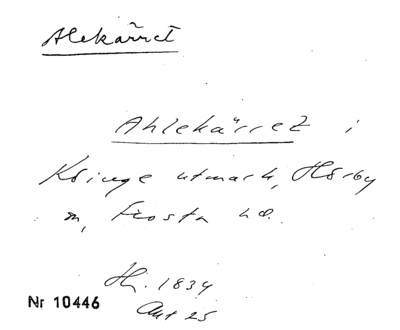 Alekärret
Ahlekärret i
Kringe utmark, Hörby
sn, Frosta hd.
H. 1834
Akt 25
Nr 10446